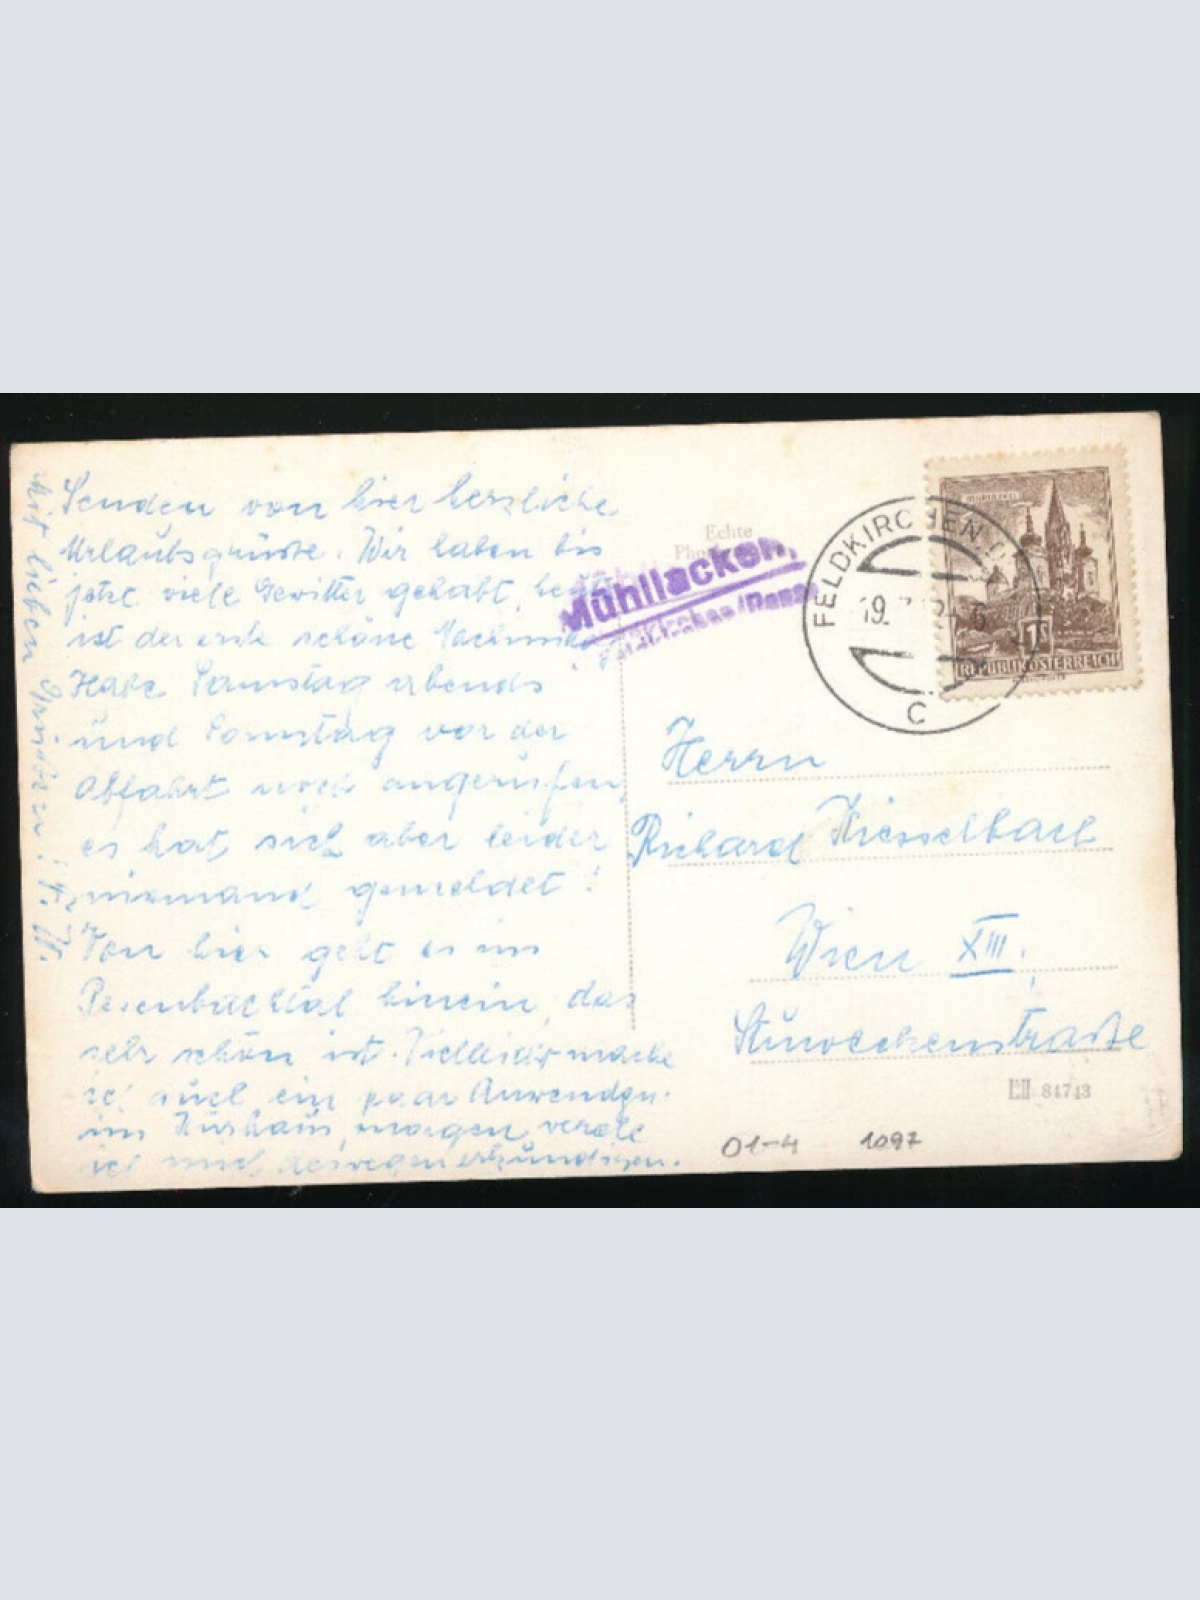 Senden von hier herzliche
Urlaubsgrüsse. Wir haben bis
jetzt viele Gewitter gehabt,
ist der erste schöne Nachmittag
Habe Samstag abends
und Sonntag vor der
Abfahrt noch angerufen,
es hat sich aber leider
niemand gemeldet!
Von hier geht es ins
Pesenbachtal hinein, das
sehr schön ist. Vielleicht mache
ich auch ein paar Anwendgn.
im Kurhaus, morgen werde
ich mich deswegen erkundigen.
Mit lieben Grüssen!
Echte
Mühllacken,
Feldkirchen/Donau
FELDKIRCHEN
19.
C
MARIAZELL
1S
REPUBLIK ÖSTERREICH
Herrn
Richard Kiesselbach
Wien XIII.,
Stuweckenstraße
LII 81713
01-4 1097